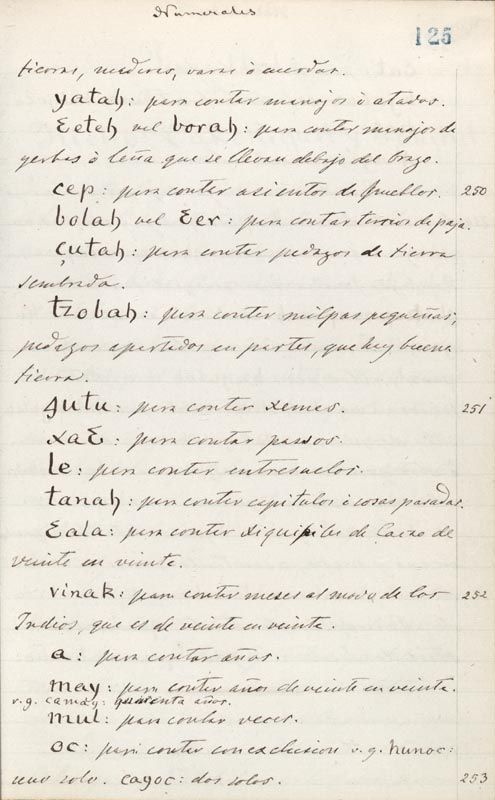 Numerales
125
tierras, maderos, varas ó cuerdas.
yatah: para contar manojos ó atados.
Ɛeteh vel borah: para contar manojos de
yerbas ó leña que se llevan debajo del brazo.
cep: para contar asientos de pueblos. 250
bolah vel Ɛer: para contar tercios de paja.
çutah: para contar pedazos de tierra
sembrada.
tzobah: para contar milpas pequeñas,
pedazos apartados en partes, que hay buena
tierra.
ꜭutu: para contar xemes. 251
xaƐ: para contar passos.
le: para contar entresuelos.
tanah: para contar capitulos ó cosas pasadas.
Ɛala: para contar xiquipiles de Cacao de
veinte en veinte.
vinak: para contar meses al modo de los 252
Indios, que es de veinte en veinte.
a: para contar años.
may: para contar años de veinte en veinte.
v.g. camay: quarenta años.
mul: para contar veces.
oc: para contar con exclusion v.g. hunoc:
uno solo. cagoc: dos solos. 253